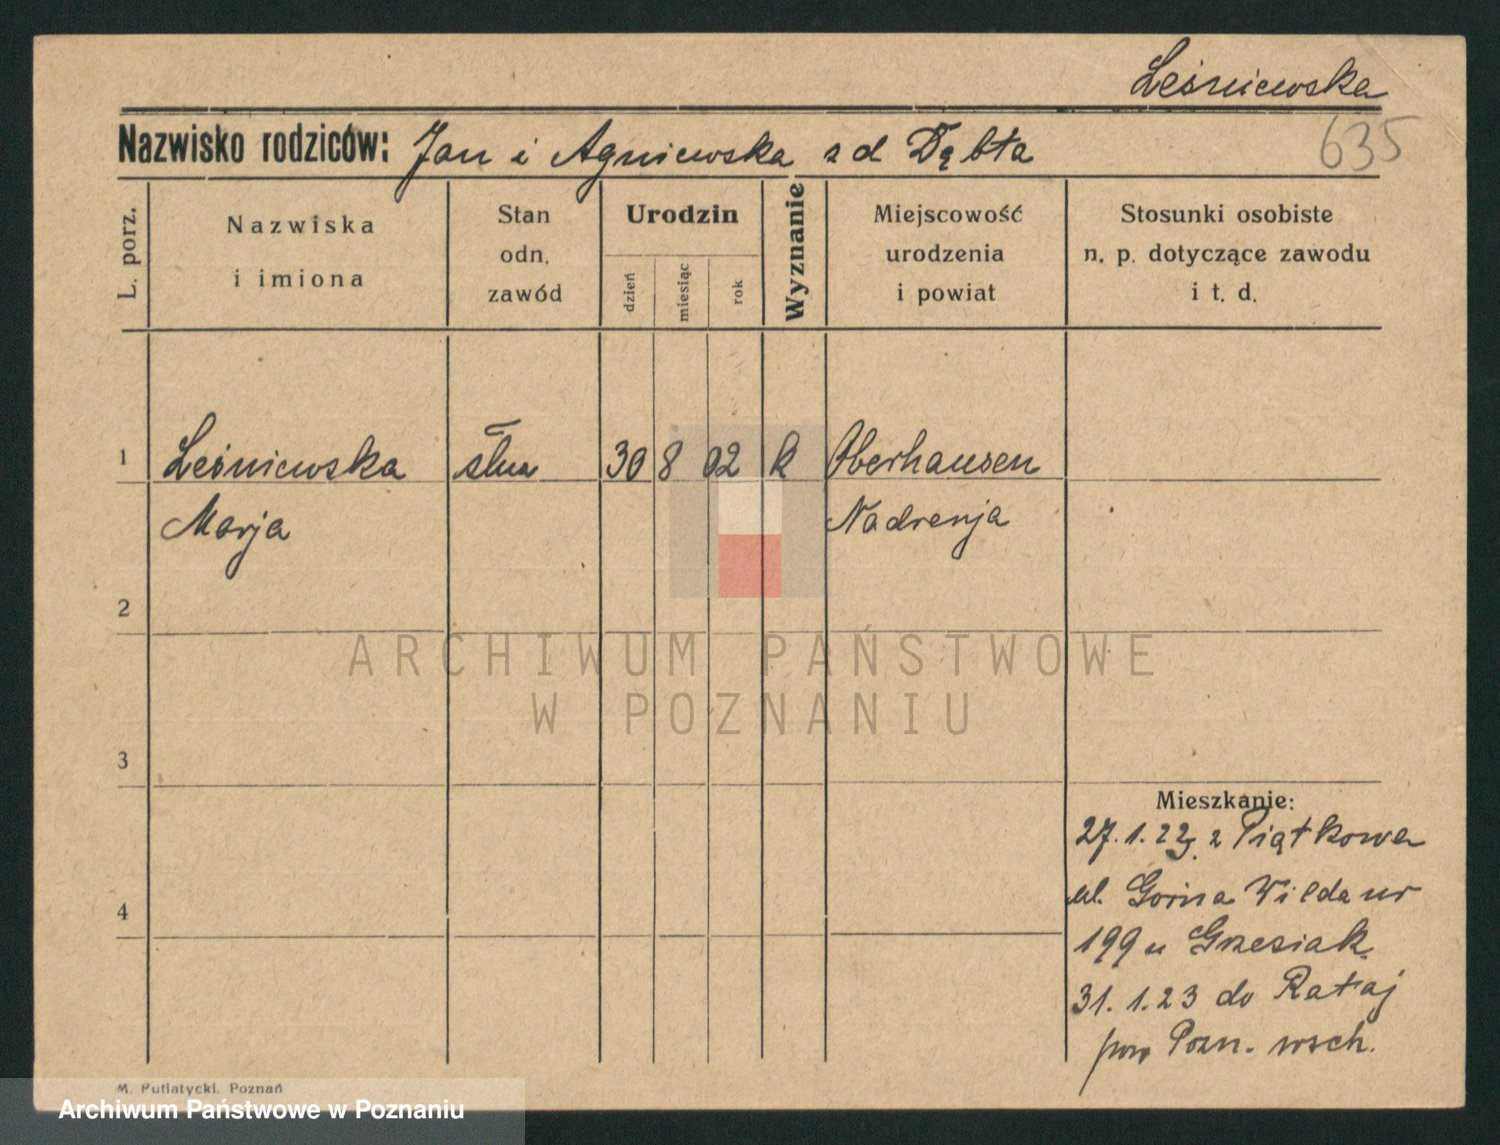 Leśniewska
635
Nazwisko rodziców: Jan i Agniewska z d Dębta
L. porz.
Nazwiska
i imiona
Stan
odn.
zawód
Urodzin
dzień
miesiąc
rok
Wyznanie
Miejscowość
urodzenia
i powiat
Stosunki osobiste
n. p. dotyczące zawodu
i t. d.
1 Leśniewska słua 30 8 02 k Oberhausen
Marja Nadrenja
2
ARCHIWUM PAŃSTWOWE
W POZNANIU
3
Mieszkanie:
27.1.22 z Piątkowa
4
ul. Górna Wilda nr
199 u Grzesiak.
31.1.23 do Rataj
pow Pozn. wsch.
M. Putiatycki, Poznań
Archiwum Państwowe w Poznaniu